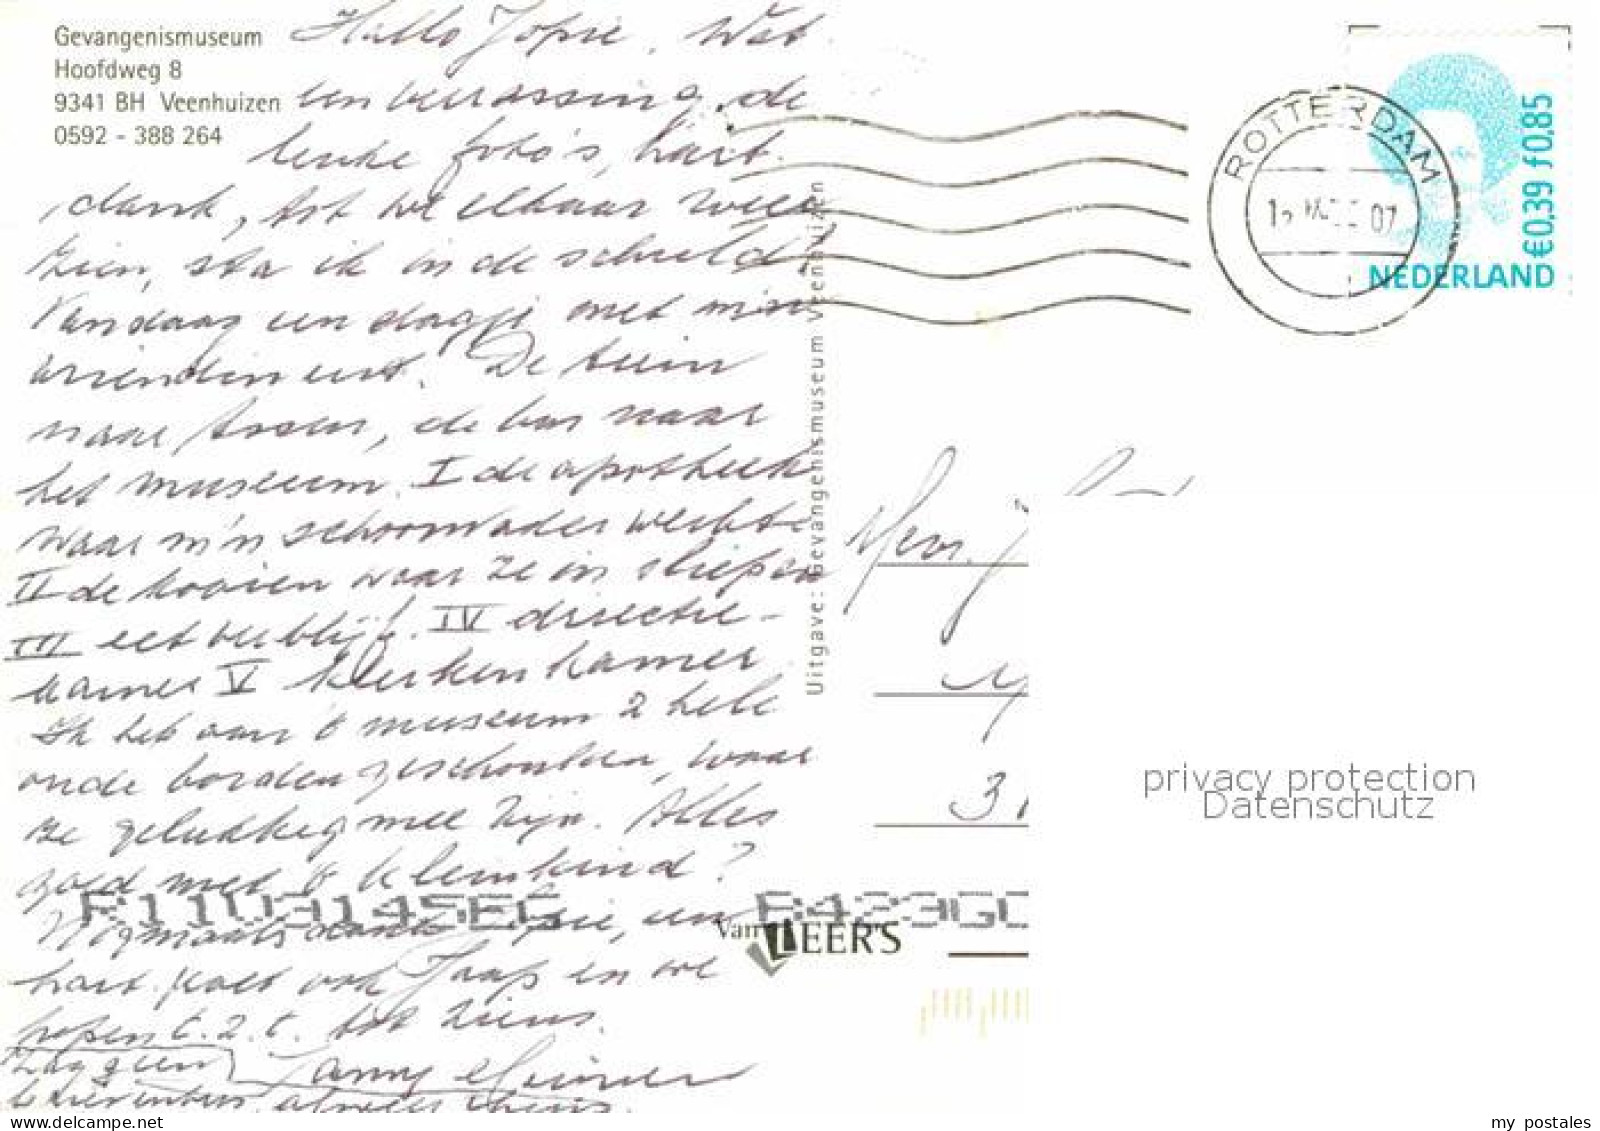 Gevangenismuseum
Hoofdweg 8
9341 BH Veenhuizen
0592 - 388 264
Hallo Jopie. Wat
een verrassing, de
leuke foto's, hart.
dank, tot we elkaar weer
zien, sta ik in de schuld.
Vandaag een dagje met m'n
vriendin uit. De trein
naar Assen, de bus naar
het museum. I de apotheek
waar m'n schoonvader werkte
II de kooien waar ze in sliepen
III eetverblijf. IV directie-
kamer V klerkenkamer
Ik heb aan 't museum 2 hele
oude borden geschonken, waar
ze gelukkig mee zijn. Alles
goed met 't kleinkind?
Nogmaals dank Jopie, een
hart. groet ook Jaap en we
hopen t.z.t. tot ziens.
Zag geen
brievenbus, alweer thuis.
Uitgave: Gevangenismuseum Veenhuizen
ROTTERDAM
07
NEDERLAND
€0,39 f0,85
Mevr. J.
3
Van LEER'S
privacy protection
Datenschutz
delcampe.net
my_postales